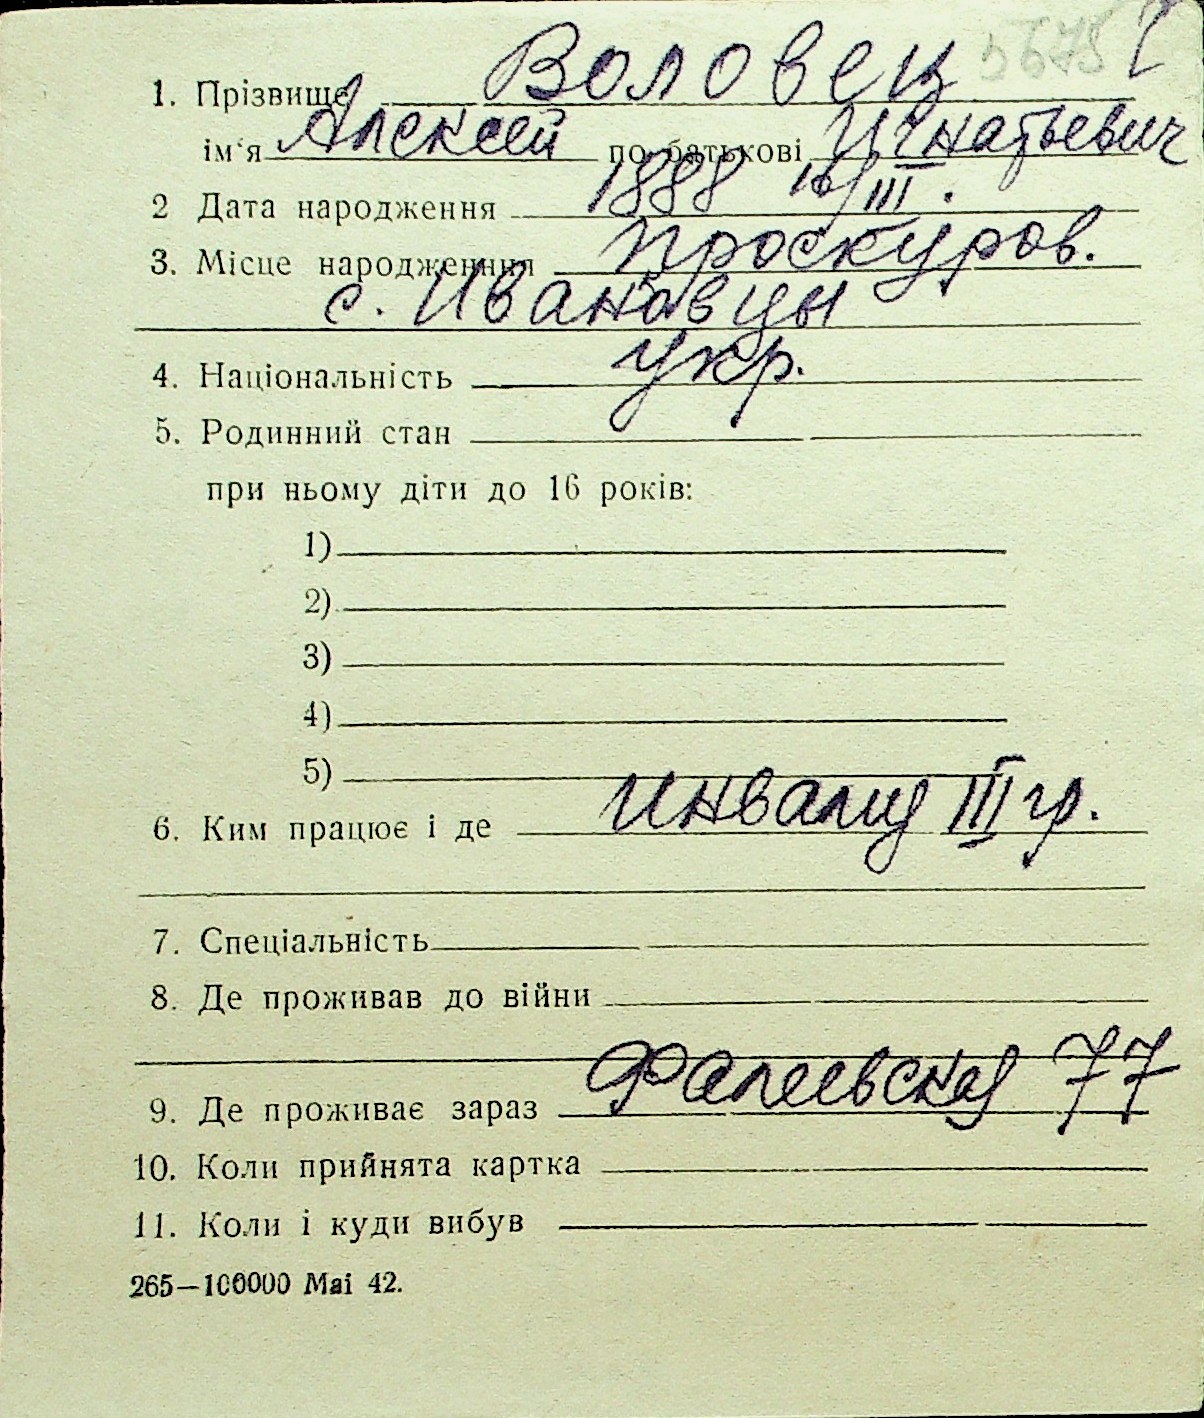 5675
1. Прізвище Воловец
ім'я Алексей по батькові Игнатьевич
2 Дата народження 1888 16/III.
3. Місце народженння Проскуров.
с. Ивановцы
4. Національність укр.
5. Родинний стан
при ньому діти до 16 років:
1)
2)
3)
4)
5)
6. Ким працює і де инвалид III гр.
7. Спеціальність
8. Де проживав до війни
9. Де проживає зараз Фалеевская 77
10. Коли прийнята картка
11. Коли і куди вибув
265—100000 Mai 42.